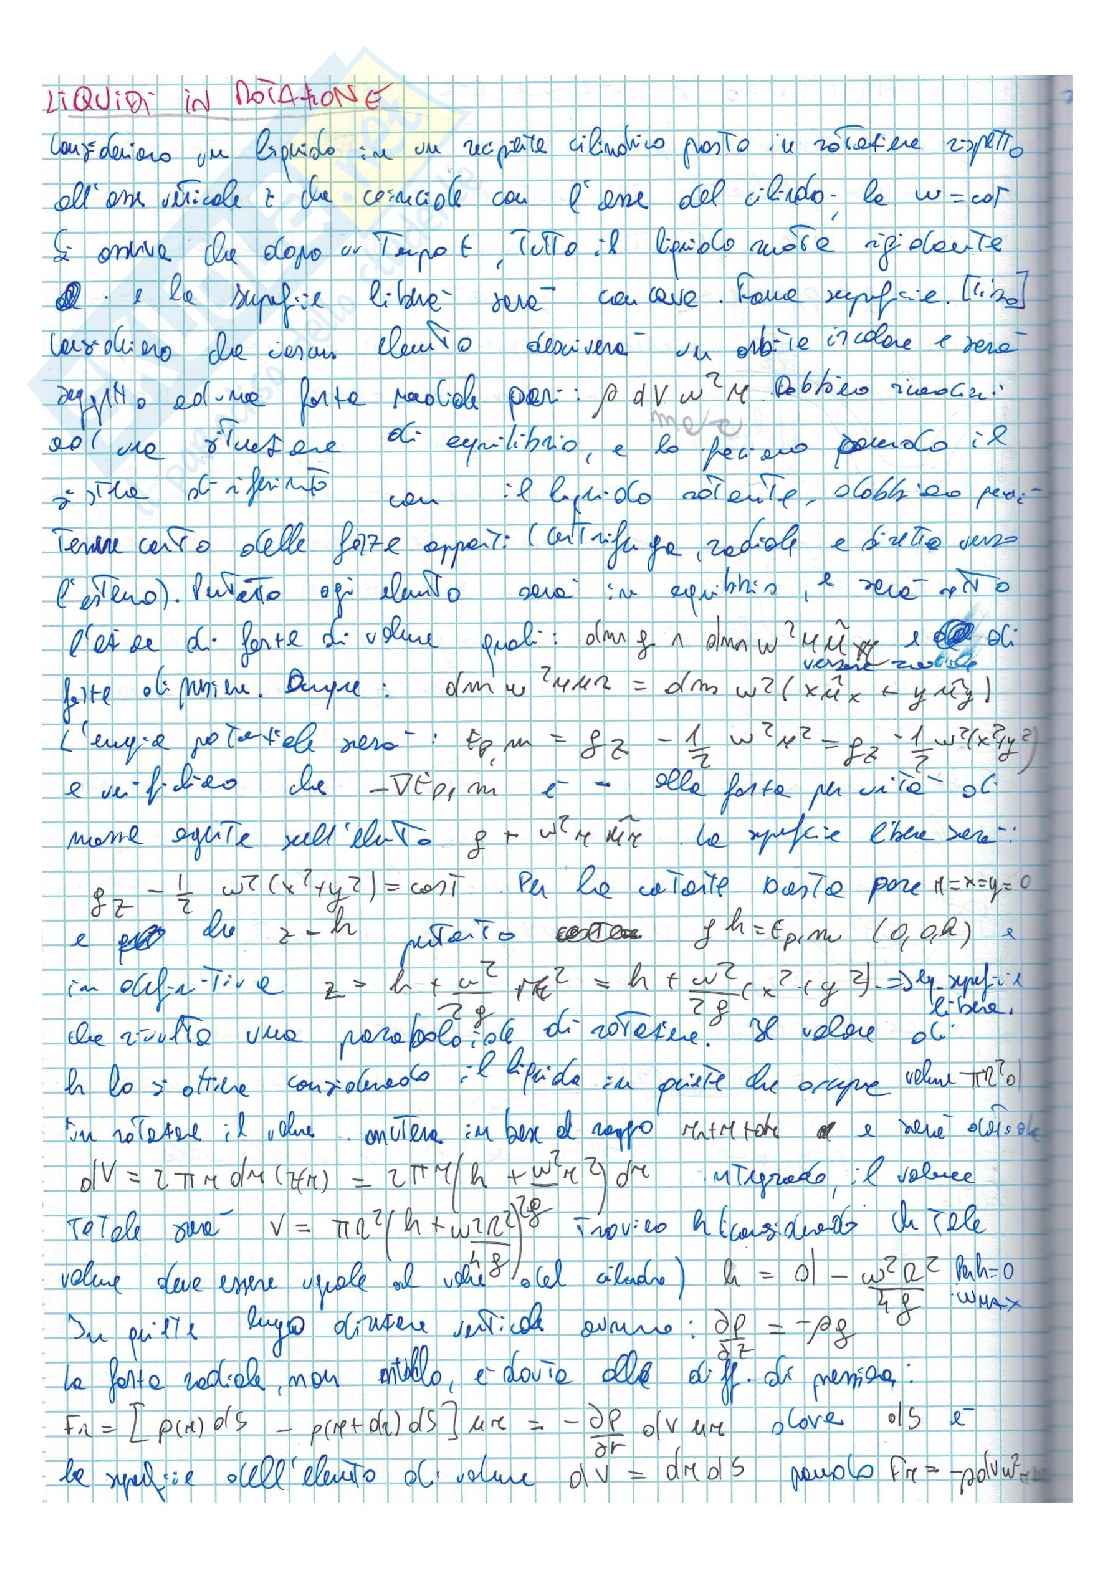 LIQUIDI IN ROTAZIONE
Consideriamo un liquido in un recipiente cilindrico posto in rotazione rispetto
all'asse verticale z che coincide con l'asse del cilindro; la w = cost
Si osserva che dopo un Tempo t, Tutto il liquido ruota rigidamente
e la superficie libera sarà concava. Forma superficie.
Consideriamo che ciascun elemento descriverà un'orbita circolare e sarà
soggetto ad una forza radiale pari: ρ dV w² r Dobbiamo
ad una situazione di equilibrio, e lo facciamo ponendo il
sistema di riferimento con il liquido rotante, dobbiamo però
Tenere conto delle forze apparenti (centrifuga, radiale e diretta verso
l'esterno). Pertanto ogni elemento sarà in equilibrio, e sarà sotto
l'azione di forze di volume quali: dm g e dm w² r u_r e di
versore radiale
forze di pressione. Dunque: dm w² r u_r = dm w² (x u_x + y u_y)
L'energia potenziale sarà: Ep,m = gz - 1/2 w² r² = gz - 1/2 w² (x²+y²)
e verifichiamo che -∇Ep,m è = alla forza per unità di
massa agente sull'elemento g + w² r u_r La superficie libera sarà:
gz - 1/2 w² (x²+y²) = cost Per la costante basta porre r=x=y=0
e che z = h pertanto gh = Ep,m (0,0,h) e
in definitiva z = h + w²/2g r² = h + w²/2g (x²+y²) => eq. superficie
libera.
che risulta una paraboloide di rotazione. Il valore di
h lo si ottiene considerando il liquido in quiete che occupa volume πR²d
In rotazione il volume in base al raggio r, r+dr e sarà
dV = 2πr dr (z(r)) = 2πr (h + w²r²/2g) dr integrando, il volume
Totale sarà V = πR² (h + w²R²/4g) Troviamo h (considerando che Tale
volume deve essere uguale al volume del cilindro) h = d - w²R²/4g Per h=0
w MAX
In quiete lungo direzione verticale avremo: ∂p/∂z = -ρg
La forza radiale, è dovuta alla diff. di pressione:
Fr = [p(r) dS - p(r+dr) dS] u_r = -∂p/∂r dV u_r dove dS è
la superficie dell'elemento di volume dV = dr dS ponendo Fr = -ρ dV w²